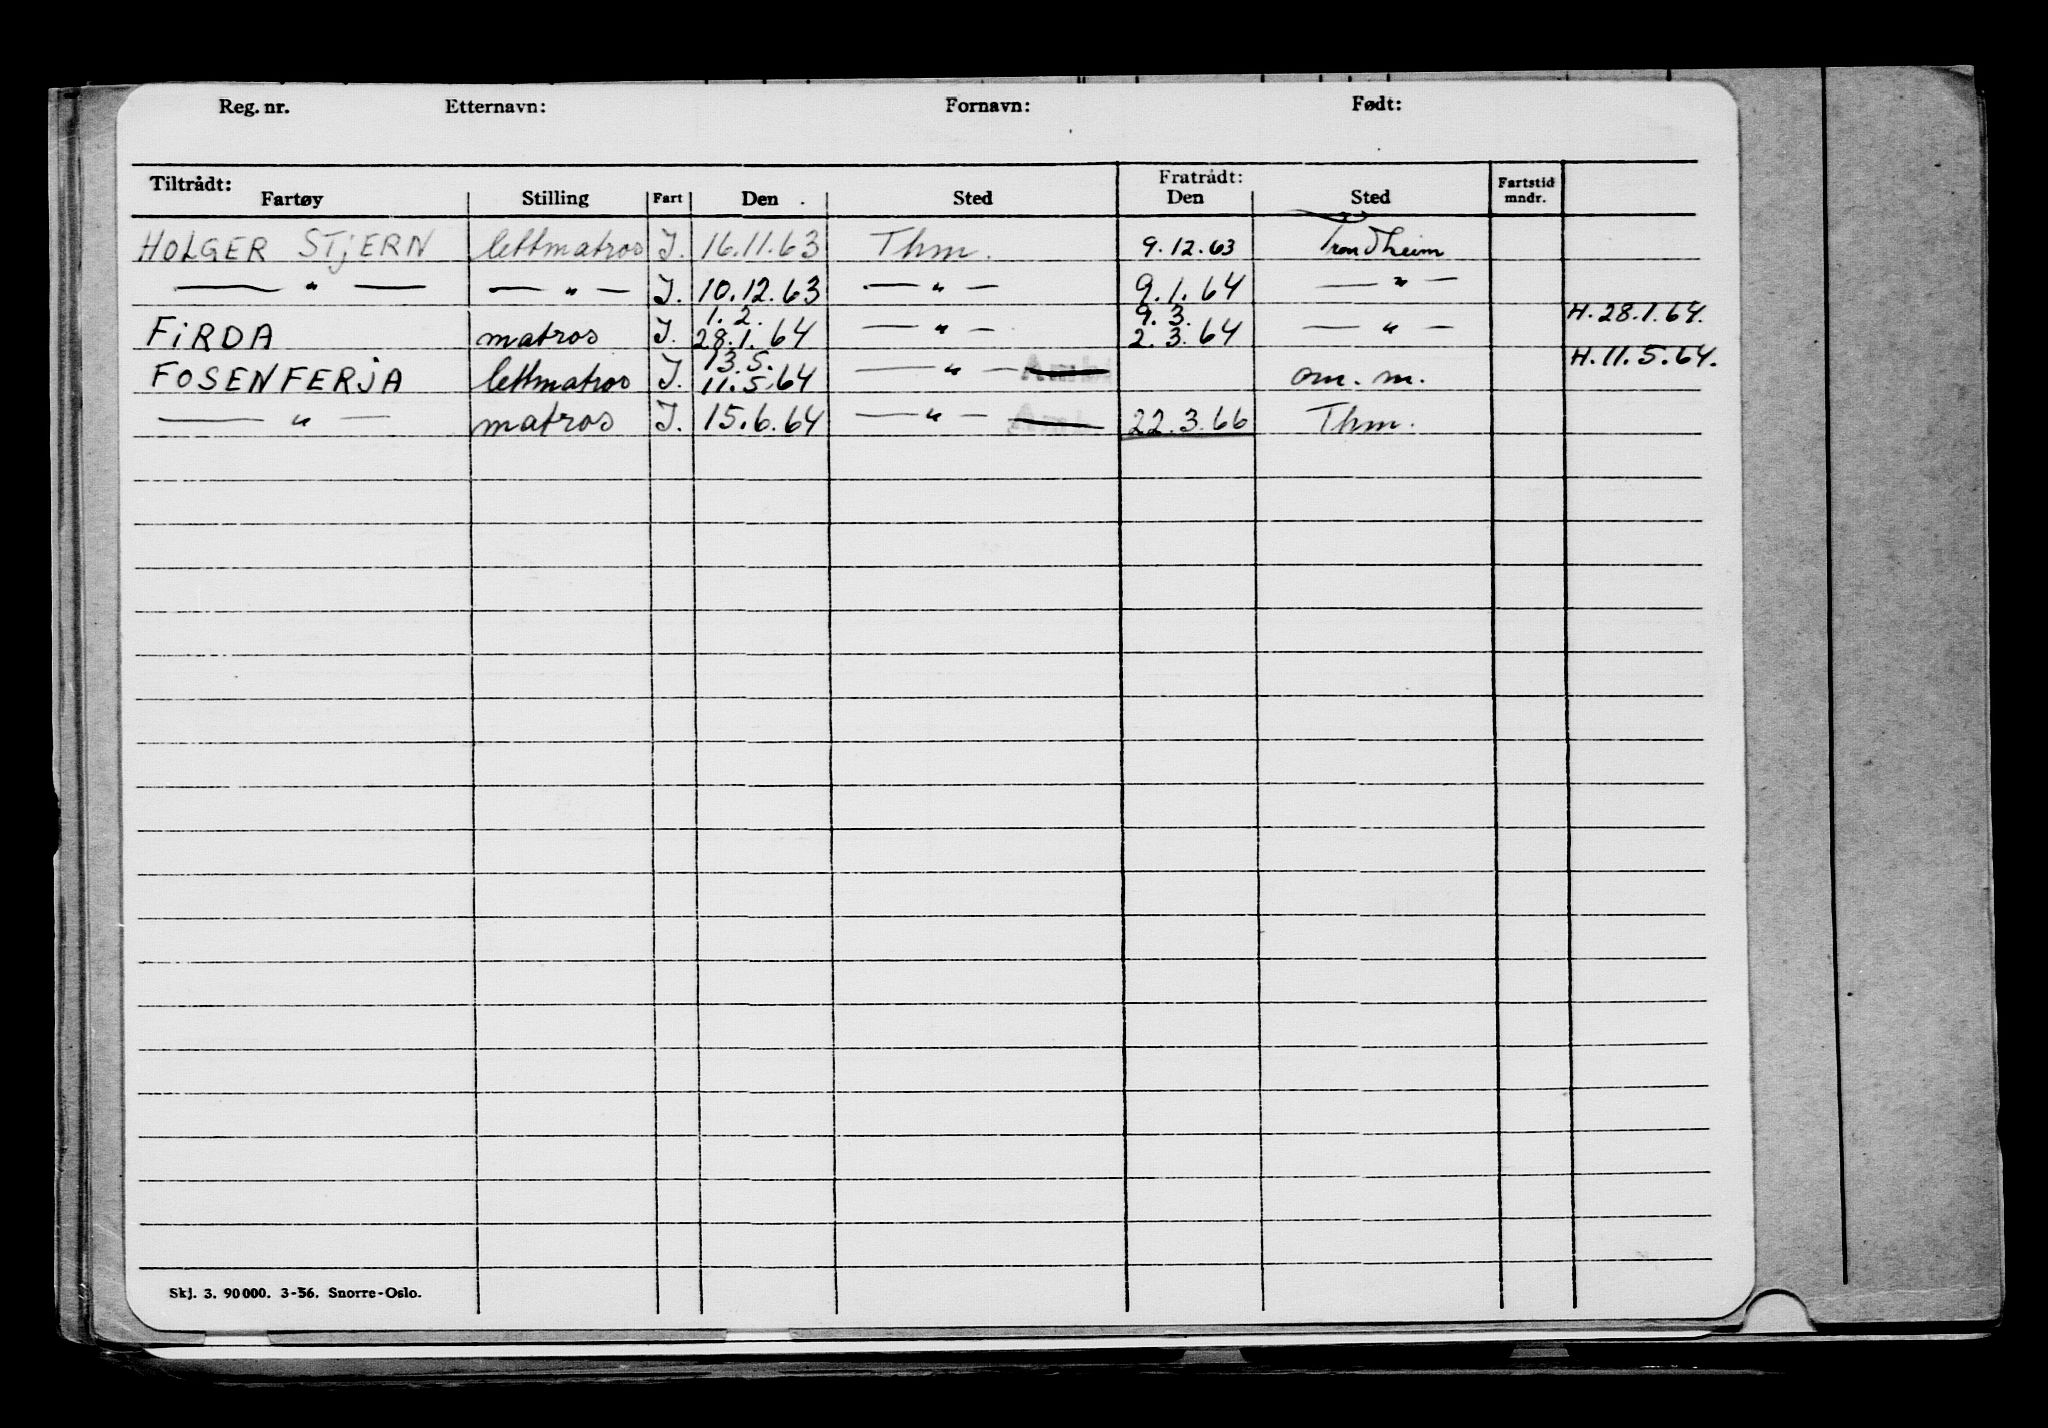 Reg. nr. Etternavn: Fornavn: Født:
Tiltrådt: Fratrådt:
Fartøy Stilling Fart Den Sted Den Sted Fartstid mndr.
HOLGER STjERN lettmatros I. 16.11.63 Thm. 9.12.63 Trondheim
— " — — " — I. 10.12.63 — " — 9.1.64 — " —
1.2. 9.3. H. 28.1.64.
FiRDA matros I. 28.1.64 — " — 2.3.64 — " —
13.5. H. 11.5.64.
FOSENFERJA lettmatros I. 11.5.64 — " — om. m.
— " — matros I. 15.6.64 — " — 22.3.66 Thm.
Skj. 3. 90000. 3-56. Snorre-Oslo.